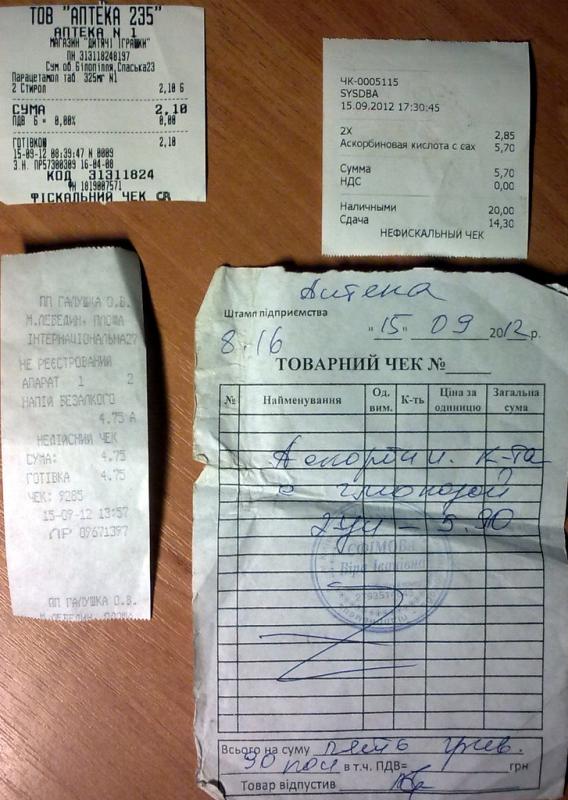 ТОВ "АПТЕКА 235"
АПТЕКА N 1
МАГАЗИН "ДИТЯЧІ ІГРАШКИ"
ПН 313118248197
Сум.об.Білопілля,Спаська23
Парацетамол таб 325мг N1
2 Стирол 2,10 Б
СУМА 2,10
ПДВ Б = 0,00% 0,00
ГОТІВКОЮ 2,10
15-09-12 08:39:47 N 0009
З.Н. ПР57300309 16-04-08
КОД 31311824
ФН 1819007571
ФІСКАЛЬНИЙ ЧЕК
ЧК-0005115
SYSDBA
15.09.2012 17:30:45
2X 2,85
Аскорбиновая кислота с сах 5,70
Сумма 5,70
НДС 0,00
Наличными 20,00
Сдача 14,30
НЕФИСКАЛЬНЫЙ ЧЕК
ПП ГАЛУШКА О.В.
М.ЛЕБЕДИН, ПЛОЩА
ІНТЕРНАЦІОНАЛЬНА27
НЕ РЕЄСТРОВАНИЙ
АПАРАТ 1 2
НАПІЙ БЕЗАЛКОГО
4.75 А
НЕДІЙСНИЙ ЧЕК
СУМА: 4.75
ГОТІВКА 4.75
ЧЕК: 9285
15-09-12 13:57
ПР 09671397
ПП ГАЛУШКА О.В.
М.ЛЕБЕДИН, ПЛОЩА
Аптека
Штамп підприємства
8.16 "15" 09 2012 р.
ТОВАРНИЙ ЧЕК №
№ Найменування Од. вим. К-ть Ціна за одиницю Загальна сума
Аскорбин. к-та
с глюкозой
2уп – 5.90
Віра Іванівна
Всього на суму пять грив.
90 коп в т.ч. ПДВ= грн
Товар відпустив